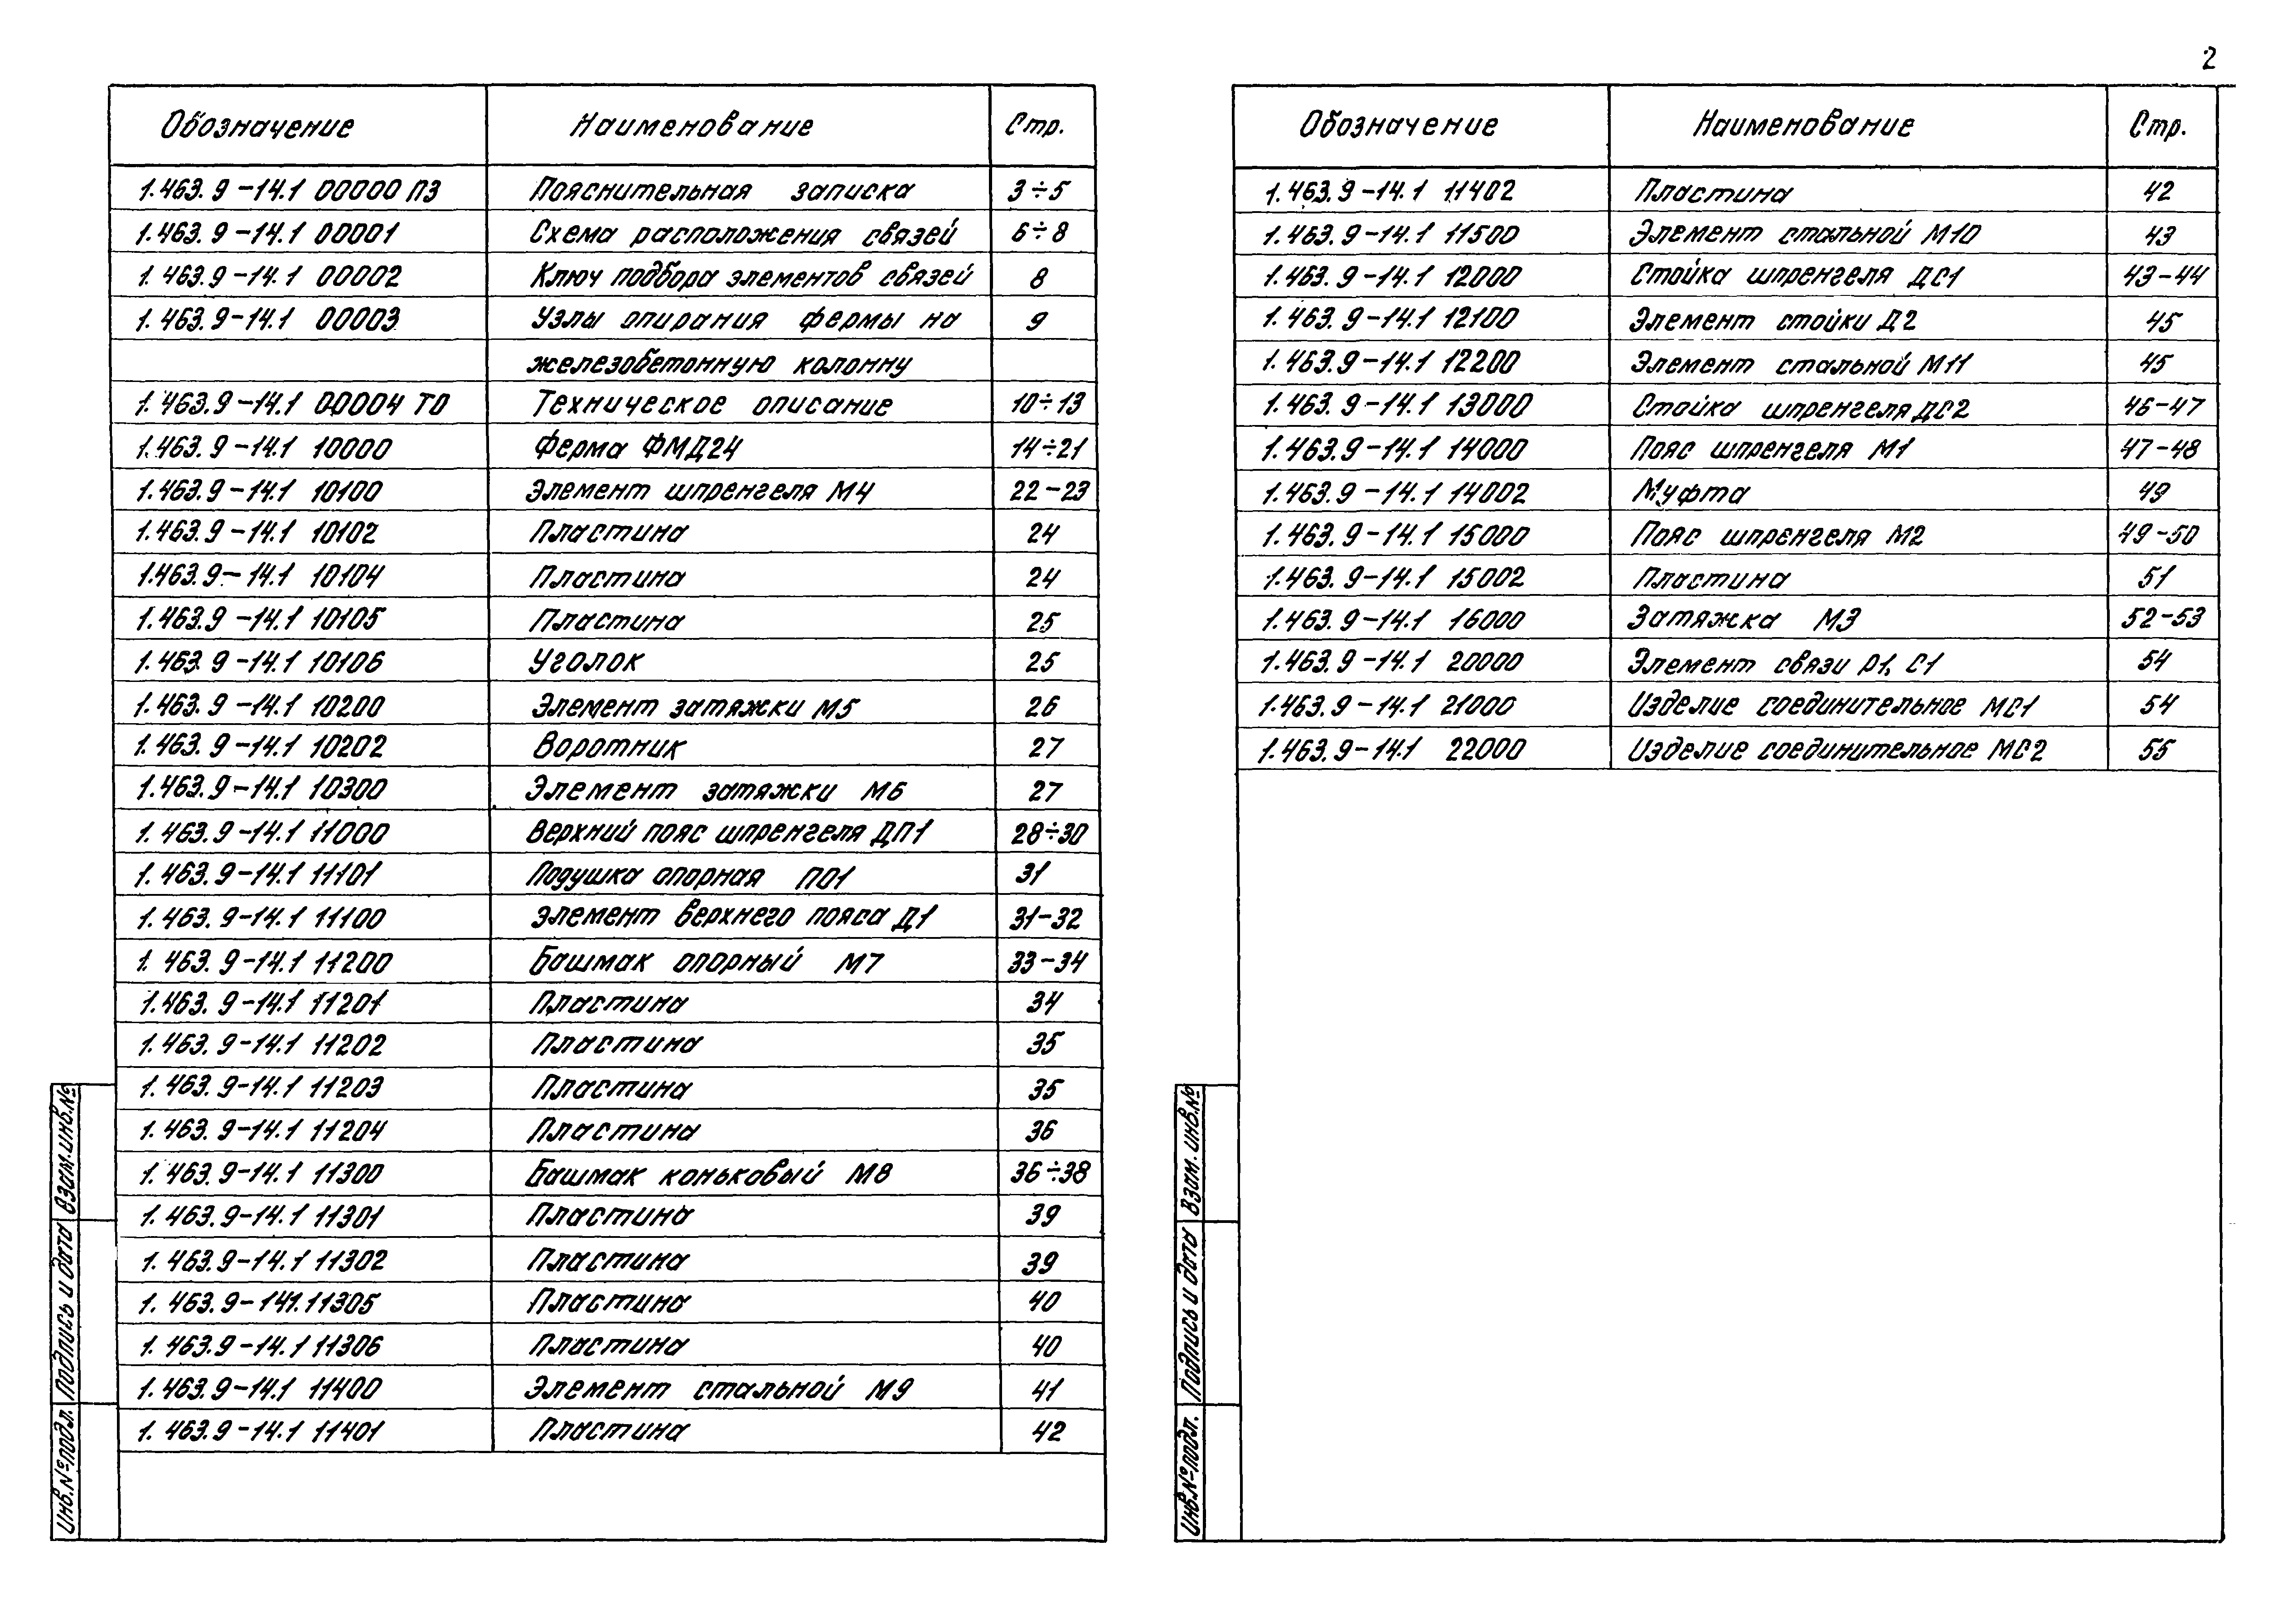 2
Обозначение Наименование Стр.
1.463.9-14.1 00000 ПЗ Пояснительная записка 3÷5
1.463.9-14.1 00001 Схема расположения связей 6÷8
1.463.9-14.1 00002 Ключ подбора элементов связей 8
1.463.9-14.1 00003 Узлы опирания фермы на 9
железобетонную колонну
1.463.9-14.1 00004 ТО Техническое описание 10÷13
1.463.9-14.1 10000 Ферма ФМД24 14÷21
1.463.9-14.1 10100 Элемент шпренгеля М4 22-23
1.463.9-14.1 10102 Пластина 24
1.463.9-14.1 10104 Пластина 24
1.463.9-14.1 10105 Пластина 25
1.463.9-14.1 10106 Уголок 25
1.463.9-14.1 10200 Элемент затяжки М5 26
1.463.9-14.1 10202 Воротник 27
1.463.9-14.1 10300 Элемент затяжки М6 27
1.463.9-14.1 11000 Верхний пояс шпренгеля ДП1 28÷30
1.463.9-14.1 11101 Подушка опорная ПО1 31
1.463.9-14.1 11100 Элемент верхнего пояса Д1 31-32
1.463.9-14.1 11200 Башмак опорный М7 33-34
1.463.9-14.1 11201 Пластина 34
1.463.9-14.1 11202 Пластина 35
1.463.9-14.1 11203 Пластина 35
1.463.9-14.1 11204 Пластина 36
1.463.9-14.1 11300 Башмак коньковый М8 36÷38
1.463.9-14.1 11301 Пластина 39
1.463.9-14.1 11302 Пластина 39
1.463.9-141.11305 Пластина 40
1.463.9-14.1 11306 Пластина 40
1.463.9-14.1 11400 Элемент стальной М9 41
1.463.9-14.1 11401 Пластина 42
Инв.№подл. Подпись и дата Взам.инв.№
Обозначение Наименование Стр.
1.463.9-14.1 11402 Пластина 42
1.463.9-14.1 11500 Элемент стальной М10 43
1.463.9-14.1 12000 Стойка шпренгеля ДС1 43-44
1.463.9-14.1 12100 Элемент стойки Д2 45
1.463.9-14.1 12200 Элемент стальной М11 45
1.463.9-14.1 13000 Стойка шпренгеля ДС2 46-47
1.463.9-14.1 14000 Пояс шпренгеля М1 47-48
1.463.9-14.1 14002 Муфта 49
1.463.9-14.1 15000 Пояс шпренгеля М2 49-50
1.463.9-14.1 15002 Пластина 51
1.463.9-14.1 16000 Затяжка М3 52-53
1.463.9-14.1 20000 Элемент связи Р1, С1 54
1.463.9-14.1 21000 Изделие соединительное МС1 54
1.463.9-14.1 22000 Изделие соединительное МС2 55
Инв.№подл. Подпись и дата Взам.инв.№